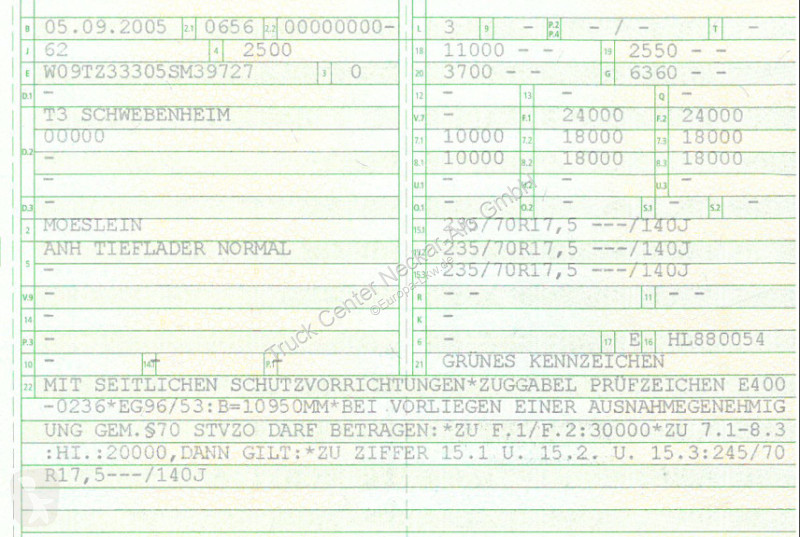 B 05.09.2005 2.1 0656 2.2 00000000- L 3 9 - P.2 P.4 - / - T -
J 62 4 2500 18 11000 - - 19 2550 - -
E W09TZ33305SM39727 3 0 20 3700 - - G 6360 - -
D.1 - 12 - 13 - Q -
T3 SCHWEBENHEIM V.7 - F.1 24000 F.2 24000
D.2 00000 7.1 10000 7.2 18000 7.3 18000
- 8.1 10000 8.2 18000 8.3 18000
- U.1 - - U.3 -
D.3 - O.1 - O.2 - S.1 - S.2 -
2 MOESLEIN 15.1 235/70R17,5 ---/140J
5 ANH TIEFLADER NORMAL 15.2 235/70R17,5 ---/140J
- 15.3 235/70R17,5 ---/140J
V.9 - R - - 11 - -
14 - K -
P.3 - 6 - 17 E 16 HL880054
10 - 14.1 - P.1 - 21 GRÜNES KENNZEICHEN
22 MIT SEITLICHEN SCHUTZVORRICHTUNGEN*ZUGGABEL PRÜFZEICHEN E400
-0236*EG96/53:B=10950MM*BEI VORLIEGEN EINER AUSNAHMEGENEHMIG
UNG GEM.§70 STVZO DARF BETRAGEN:*ZU F.1/F.2:30000*ZU 7.1-8.3
:HI.:20000,DANN GILT:*ZU ZIFFER 15.1 U. 15.2. U. 15.3:245/70
R17,5---/140J
Truck Center Neckar-Alb GmbH
©Europa-Lkw.de